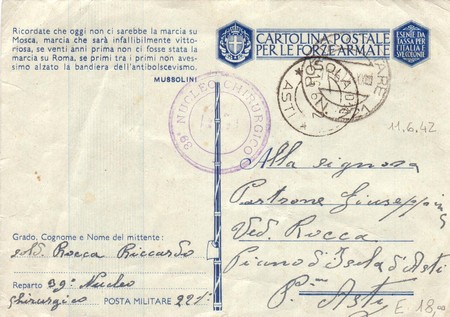 Ricordate che oggi non ci sarebbe la marcia su
Mosca, marcia che sarà infallibilmente vitto-
riosa, se venti anni prima non ci fosse stata la
marcia su Roma, se primi tra i primi non aves-
simo alzato la bandiera dell'antibolscevismo.
MUSSOLINI
CARTOLINA POSTALE
PER LE FORZE ARMATE
ESENTE DA
TASSA PER
L'ITALIA E
SVIZZERA
39° NUCLEO CHIRURGICO
ASTI
11.6.42
Alla signora
Pastrone Giuseppina
Ved. Rocca
Piano d'Isola d'Asti
P. Asti
E. 18,00
Grado, Cognome e Nome del mittente:
Rocca Riccardo
Reparto 39° Nucleo
Chirurgico POSTA MILITARE 221